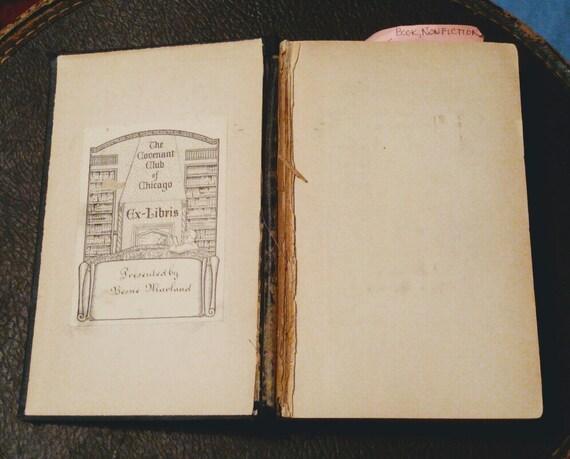 BOOK, NONFICTION
The
Covenant
Club
of
Chicago
Ex-Libris
Presented by
Marland